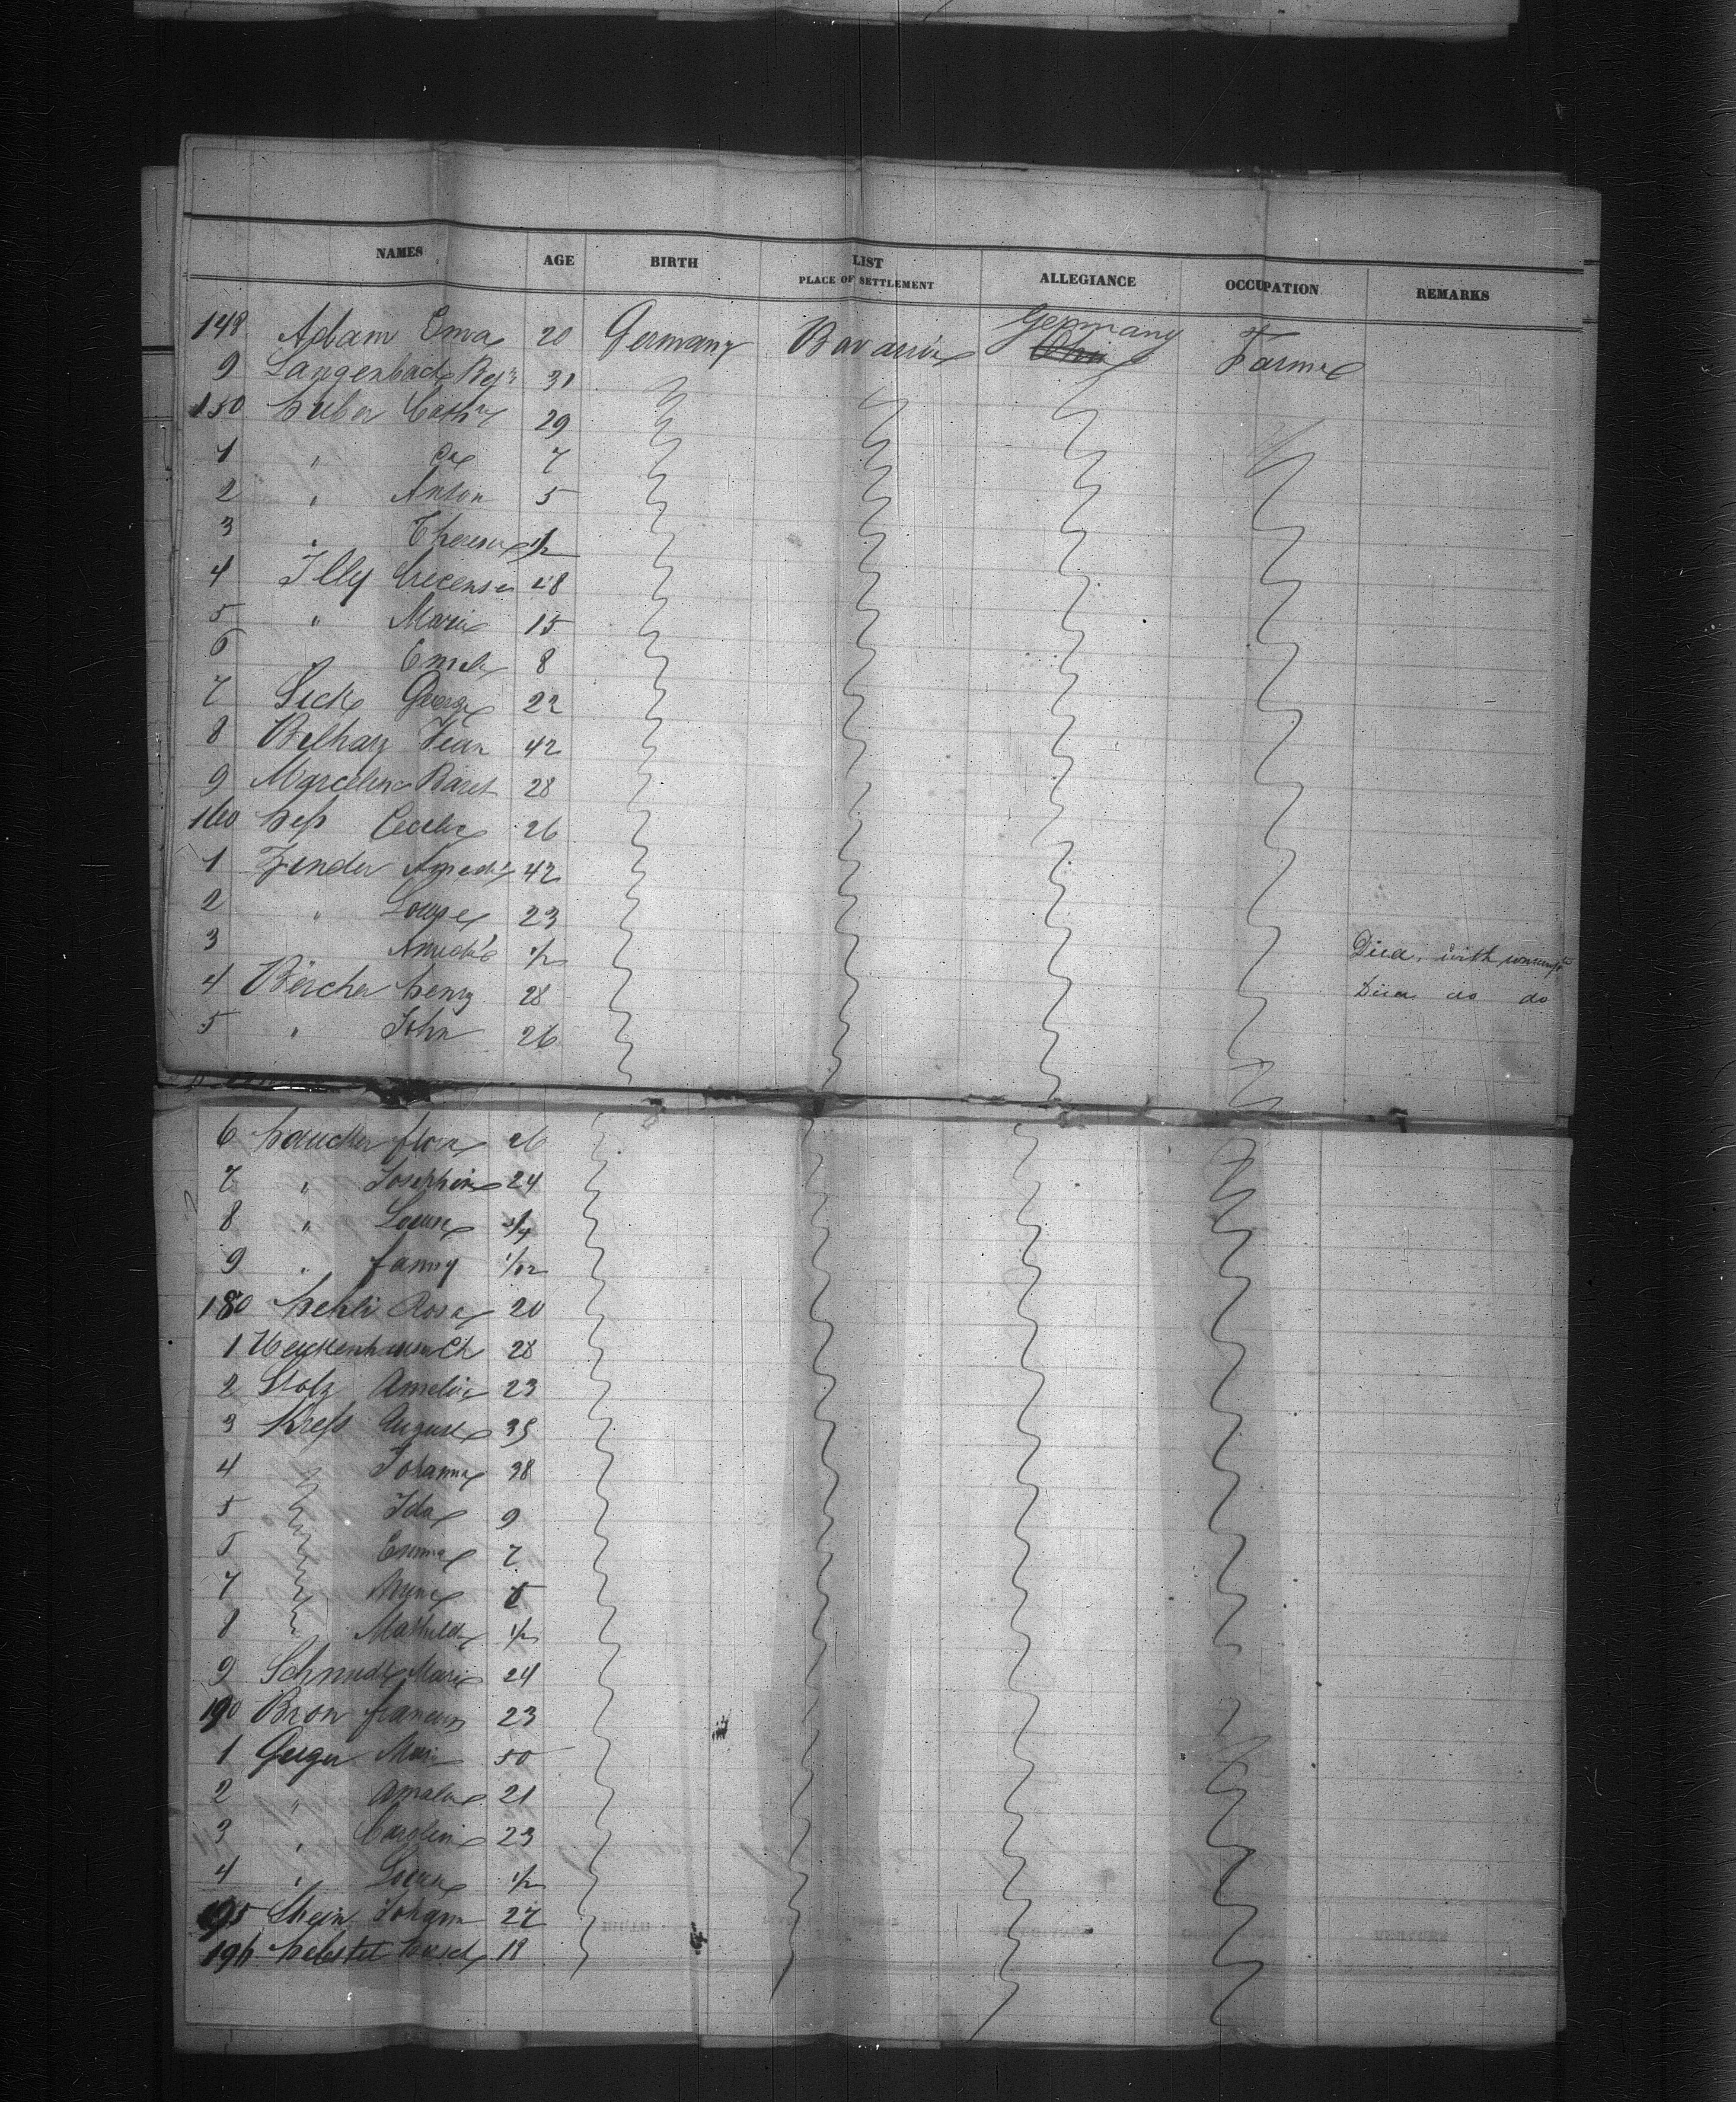 NAMES AGE BIRTH LIST PLACE OF SETTLEMENT ALLEGIANCE OCCUPATION REMARKS
148 Adam Ema 20 Germany Bavaria Germany Ohio Farmer
9 Langenbach 31
150 Huber Cath 29
1 " 7
2 " Anton 5
3 " Theresa 1/2
4 Illy Crecensa 48
5 " Maria 15
6 " 8
7 Sick George 22
8 Bilharz Jean 42
9 Marceline 28
160 Hess Cecilie 26
1 Zinder 42
2 " Louise 23
3 Amédé 1/2 Died, with
4 Bercher Henry 28 Died do do
5 " John 26
6 Haucker flora 26
7 " Josephine 24
8 " Louise 3/4
9 " fanny 1/12
180 Rosa 20
1 Ch 28
2 Stolz Amelia 23
3 Kress August 35
4 " Johanna 38
5 " Ida 9
6 " Emma 7
7 "
8 " Mathilde 1/2
9 Schmidt Marie 24
190 Bron 23
1 Geiger Marie 50
2 " Amalie 21
3 " Caroline 23
4 " Louise 1/2
195 Shein Johann 27
196 19